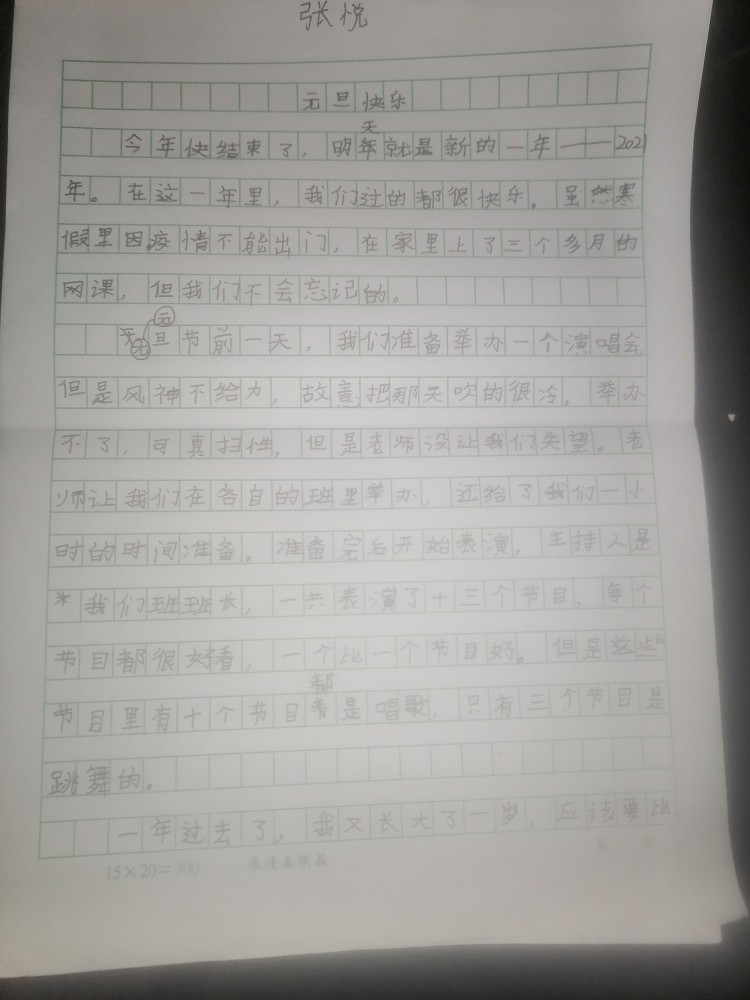 张悦
元旦快乐
天
今年快结束了，明年就是新的一年——2021
年。在这一年里，我们过的都很快乐。虽然寒
假里因疫情不能出门，在家里上了三个多月的
网课，但我们不会忘记的。
元
旦节前一天，我们准备举办一个演唱会，
但是风神不给力，故意把那天吹的很冷，举办
不了，可真扫性，但是老师没让我们失望。老
师让我们在各自的班里举办，还给了我们一小
时的时间准备。准备完后开始表演，主持人是
我们班班长，一共表演了十三个节目，每个
节目都很好看，一个比一个节目好。但是这些
都
节目里有十个节目是唱歌，只有三个节目是
跳舞的。
一年过去了，我又长大了一岁，应该要比
15×20=300